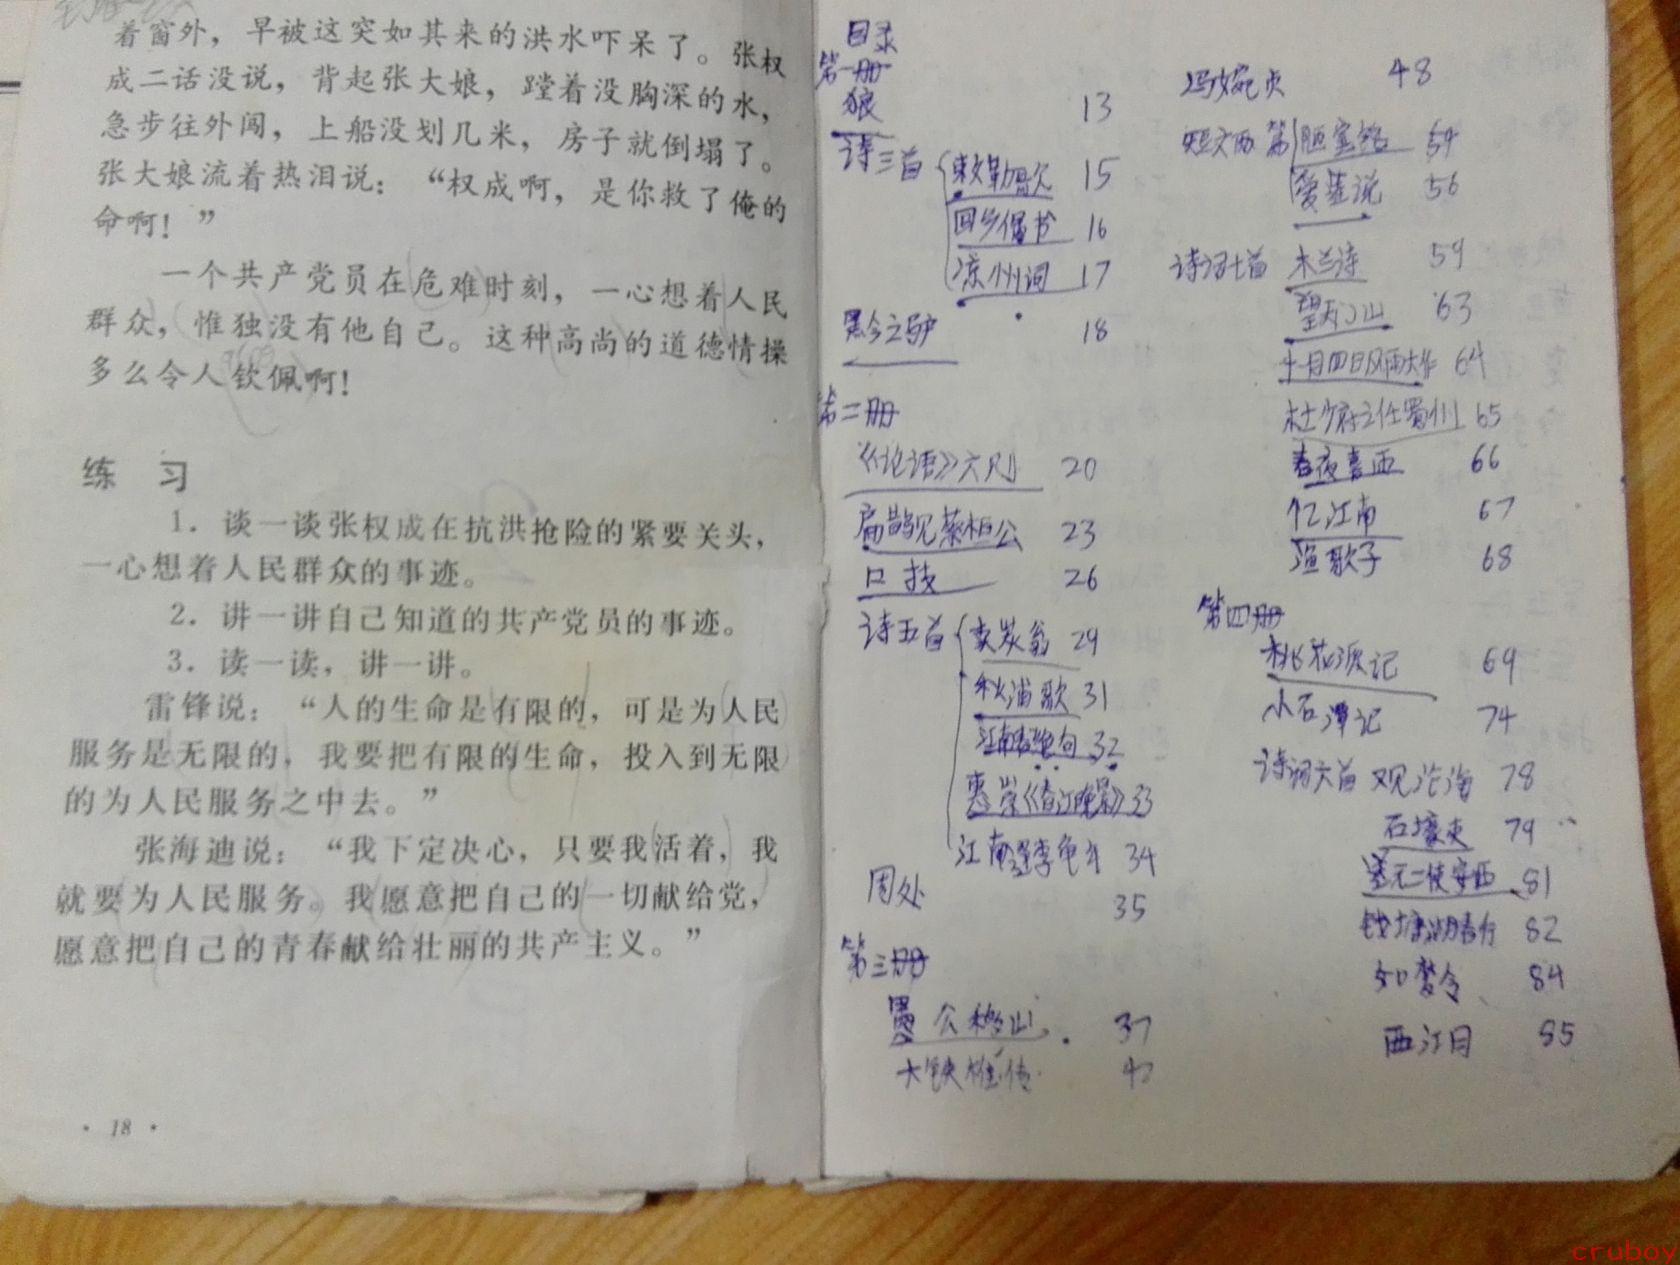 着窗外，早被这突如其来的洪水吓呆了。张权
成二话没说，背起张大娘，蹚着没胸深的水，
急步往外闯，上船没划几米，房子就倒塌了。
张大娘流着热泪说：“权成啊，是你救了俺的
命啊！”
一个共产党员在危难时刻，一心想着人民
群众，惟独没有他自己。这种高尚的道德情操
多么令人钦佩啊！
练 习
1．谈一谈张权成在抗洪抢险的紧要关头，
一心想着人民群众的事迹。
2．讲一讲自己知道的共产党员的事迹。
3．读一读，讲一讲。
雷锋说：“人的生命是有限的，可是为人民
服务是无限的，我要把有限的生命，投入到无限
的为人民服务之中去。”
张海迪说：“我下定决心，只要我活着，我
就要为人民服务。我愿意把自己的一切献给党，
愿意把自己的青春献给壮丽的共产主义。”
· 18 ·
目录
第一册
狼 13
诗三首 敕勒歌 15
回乡偶书 16
凉州词 17
黔之驴 18
第二册
《论语》六则 20
扁鹊见蔡桓公 23
口技 26
诗五首 卖炭翁 29
秋浦歌 31
江南春绝句 32
惠崇《春江晚景》 33
江南逢李龟年 34
周处 35
第三册
愚公移山 37
大铁椎传
冯婉贞 48
短文两篇 陋室铭 54
爱莲说 56
诗词七首 木兰诗 59
望天门山 63
十一月四日风雨大作 64
杜少府之任蜀州 65
春夜喜雨 66
忆江南 67
渔歌子 68
第四册
桃花源记 69
小石潭记 74
诗词六首 观沧海 78
石壕吏 79
送元二使安西 81
钱塘湖春行 82
如梦令 84
西江月 85
crubov